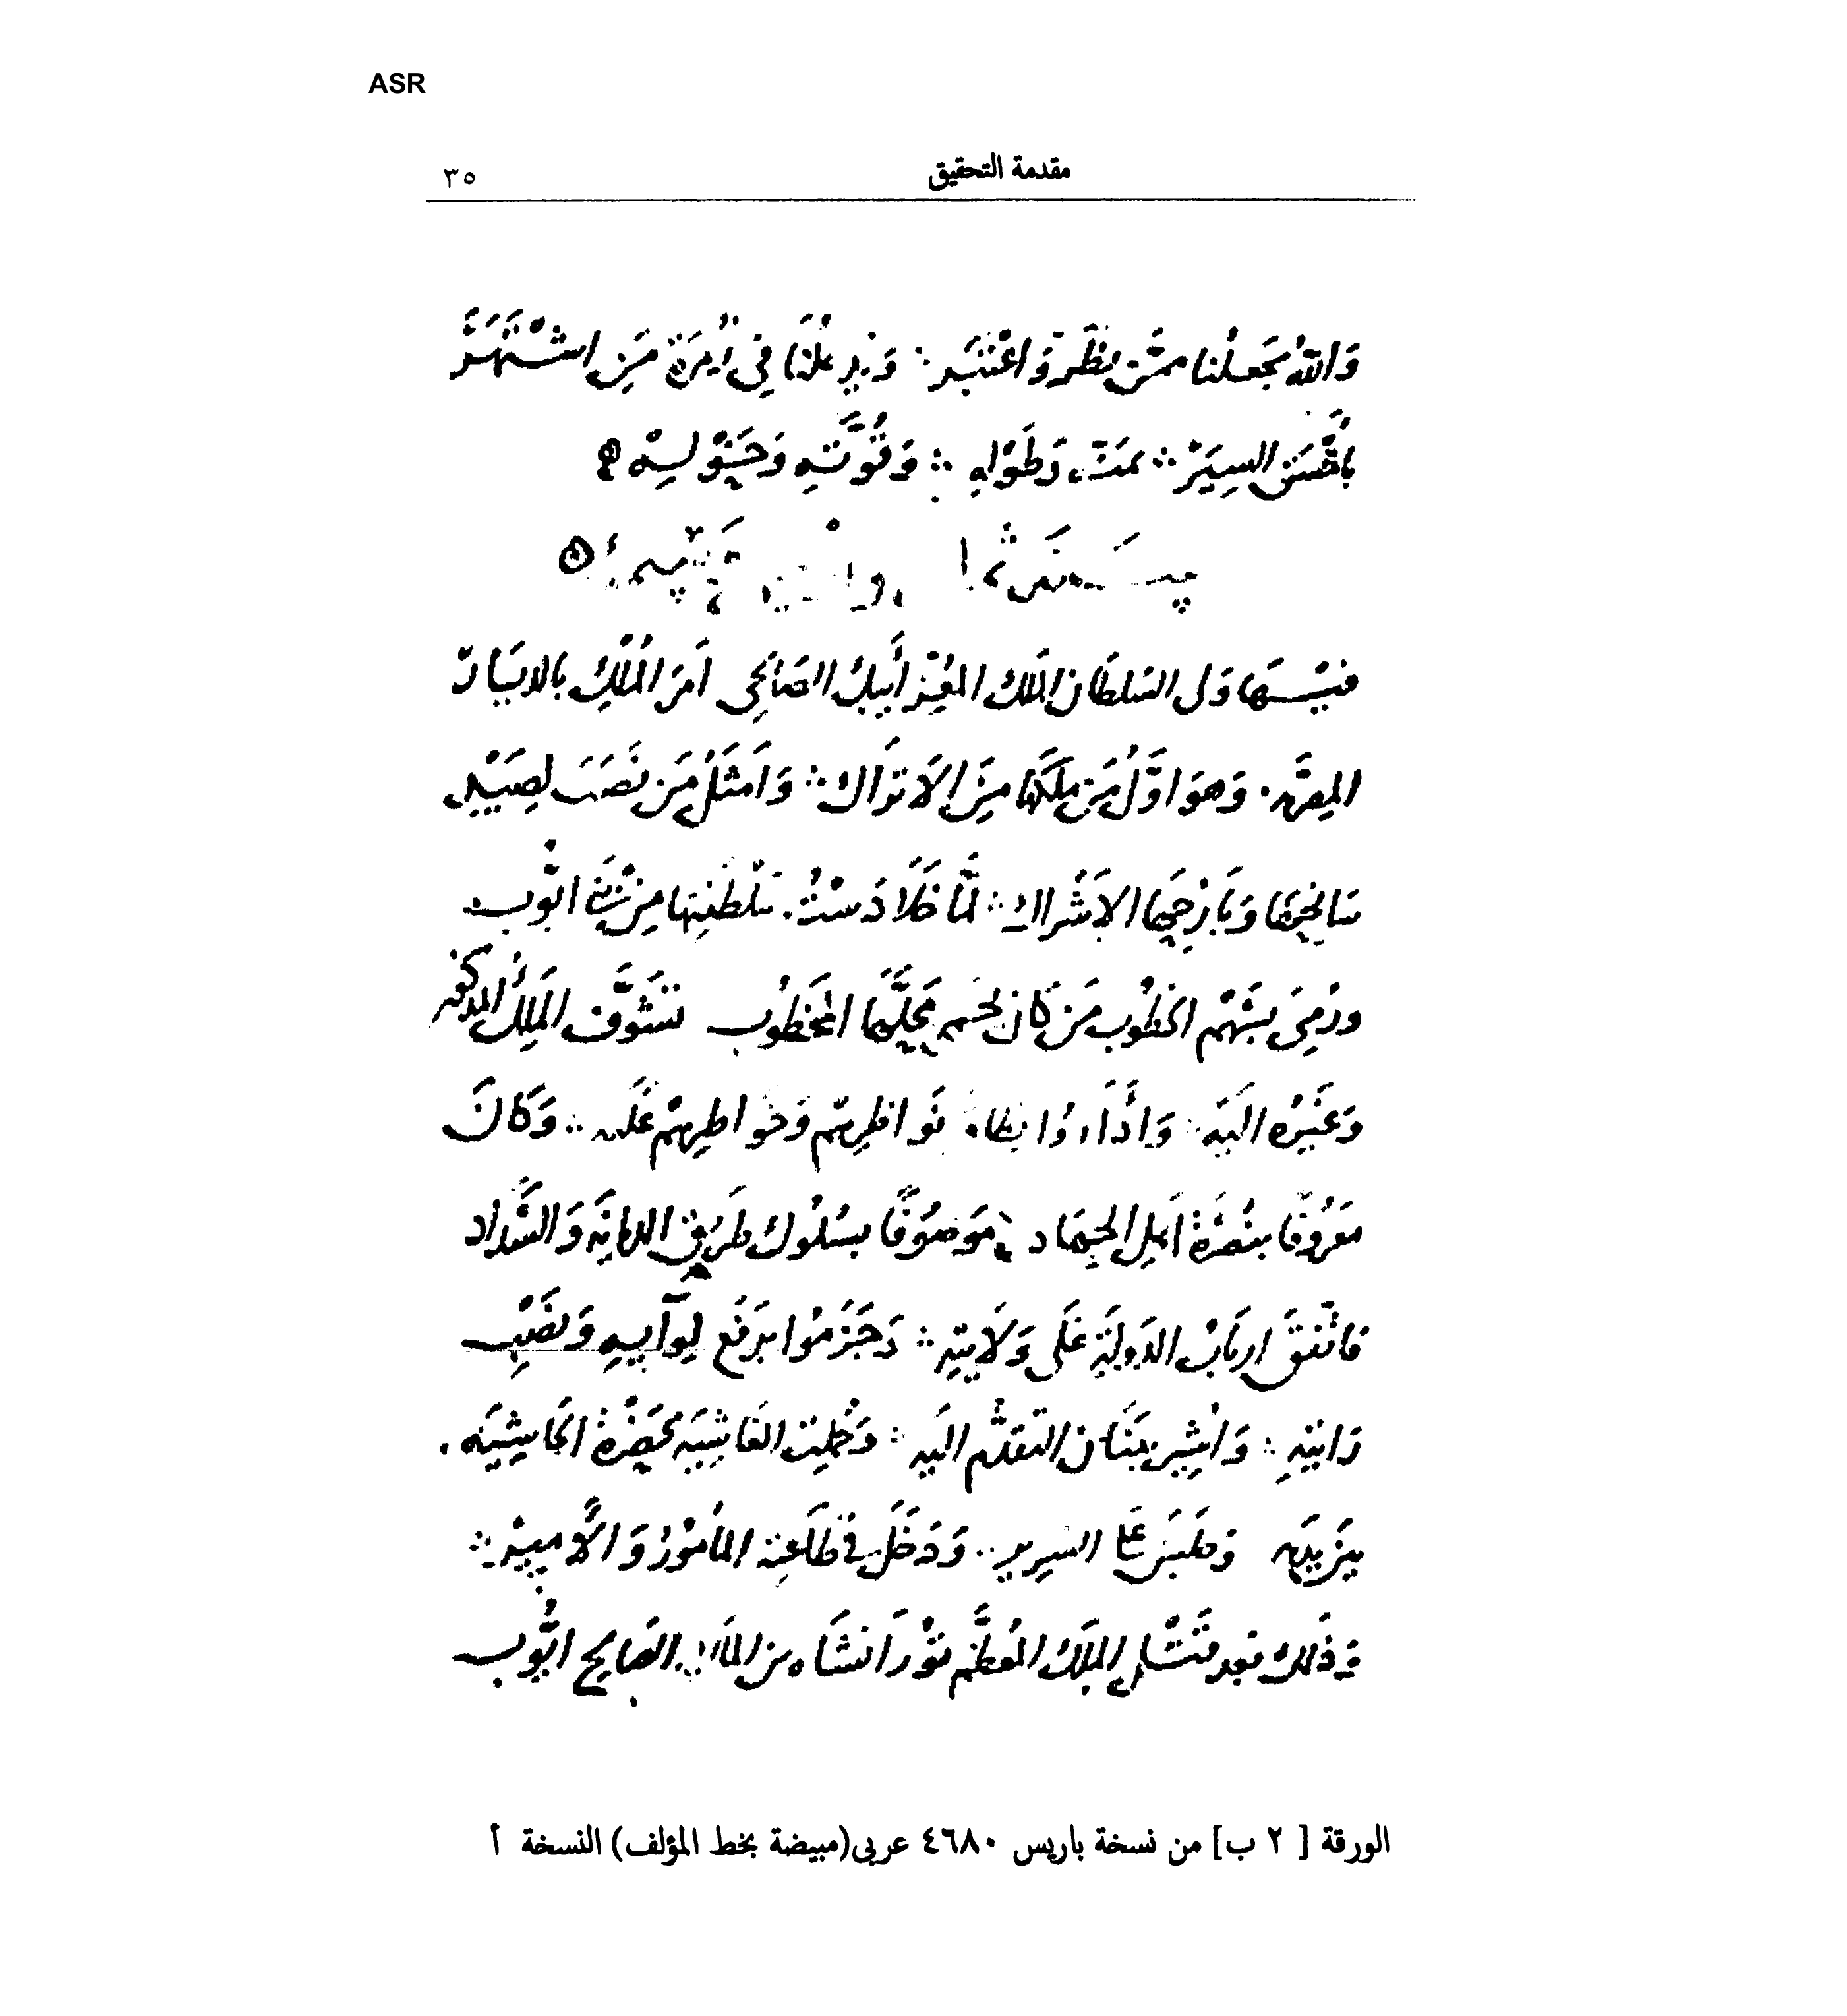 ASR
مقدمة التحقيق
٣٥
وَاللهُ يجعلنا ممّن نظر وَاعتبَر ∴ وَيدخلنَا في زمرة مَن اشتهَر
بأحْسَن السِيَر ∴ بمنّه وَطَوْله ∴ وَقُوَّتِه وَحَوْله
سَنَة ثمان وأربعين وستمائة
فيْهَا وَلى السّلطان الملك المُعِز أيبك الصَالحي أمرَ المُلك بالديَار
المِصريّة ∴ وَهوَ اوَّلُ مَن ملكَهَا مِنَ الاَتراك ∴ وَامثَلُ مَن نصَبَ لصَيْدِ
وَبَارِحهَا الاشراك ∴ لمّا خَلاَ دَسْتُ سَلطنتِها مِن بَني ايّوب
ورُمِيَ بسَهْم الخطُوب مَن كَان لحسْم محلّهَا المخطُوب تشوّف المَلِكُ المذكور
وَغَيرُه اليَه ∴ وَادَاروا نطاق نَواظِرهم وَخواطِرهِمْ عَليه ∴ وَكانَ
مَعرُوفًا بنُصْرَة اهلِ الجهَاد ∴ مَوصُوفًا بسُلُوك طَريق الامانة وَالسَّداد
فاتّفقَ اربَابُ الدَولَة عَلَى وَلاَيتِه ∴ وَجَزمُوا برَفع لِوآيهِ وَنصْبِ
رَايتِه ∴ وَاشِيرَ ببَنَان التقدّم اليَه ∴ وَحُملت الغَاشِيَة بحَضْرَة الحاشِيَه
بين يديه وَجلسَ على السرير ∴ وَدَخَلَ في طَاعتِه المأمُورُ وَالأمِيْر ∴
وَذلك بَعد قتْل المَلك المُعظّم تورَانشَاه بن الملك الصَالح ايّوب
الورقة [ ٢ ب] من نسخة باريس ٤٦٨٠ عربى (مبيضة بخط المؤلف) النسخة أ